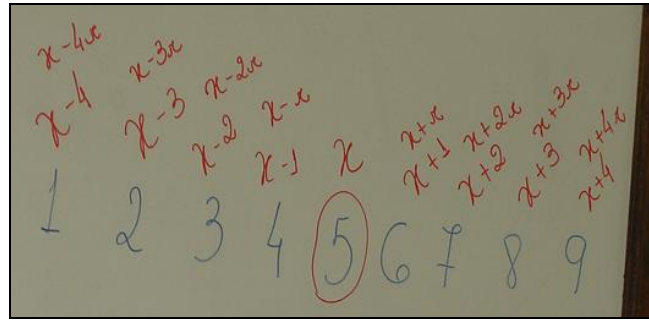 x-4r x-3r x-2r x-r x+r x+2r x+3r x+4r
x-4 x-3 x-2 x-1 x x+1 x+2 x+3 x+4
1 2 3 4 5 6 7 8 9